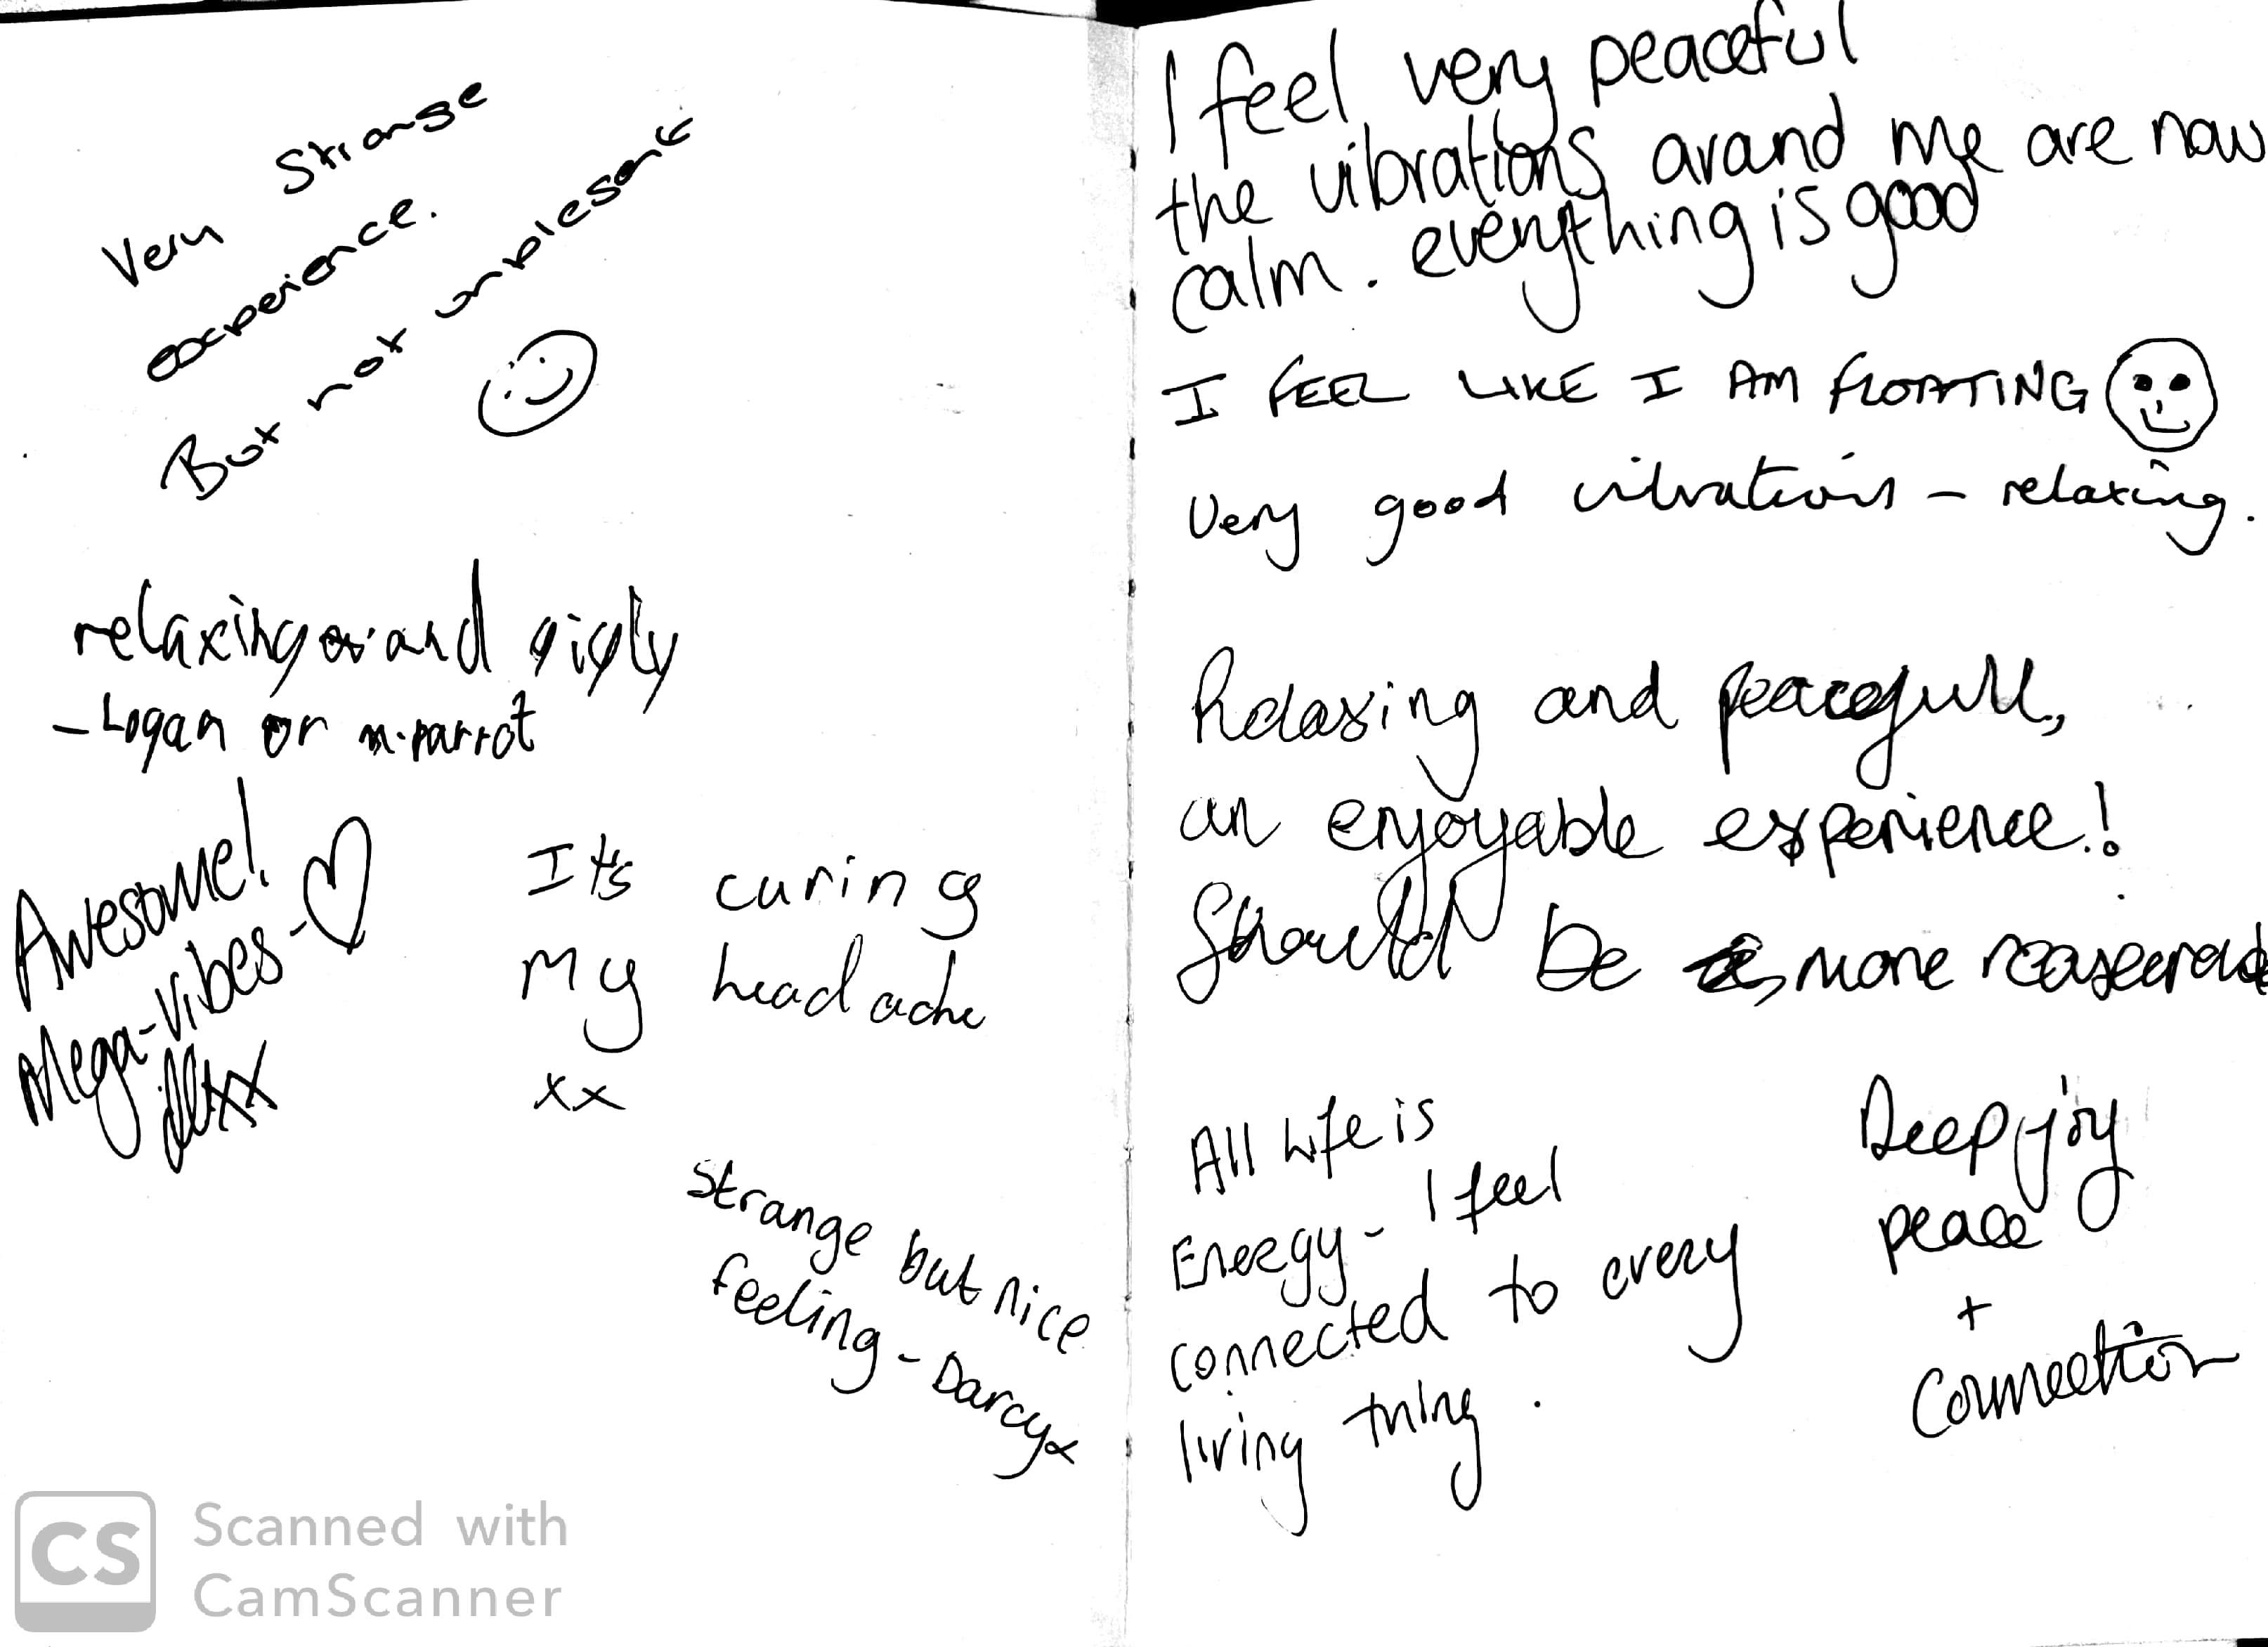 Very Strange
experience.
But not unplesant
relaxing and gigly
- Logan or m.parrot
Awesome!
Mega-vibes-
xx
Its curing
My headache
xx
Strange but nice
feeling - Darcy x
I feel very peaceful
the vibrations around me are now
calm. everything is good
I FEEL LIKE I AM FLOATING
Very good vibrations - relaxing.
Relaxing and peacefull,
an enjoyable experience!
Should be more
All life is
Energy - I feel
connected to every
living thing.
Deep joy
peace
+
Connection
CS
Scanned with
CamScanner